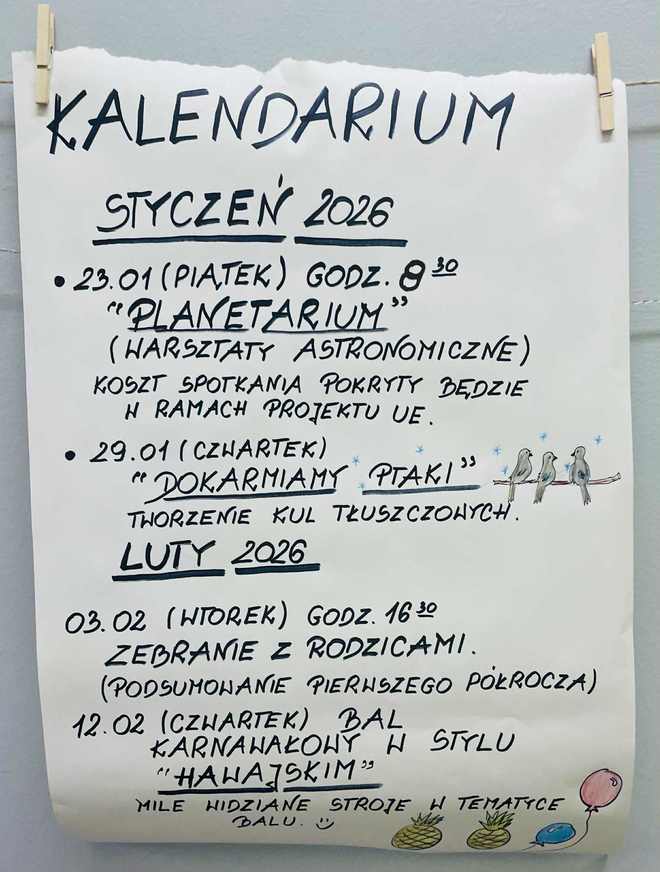 KALENDARIUM
STYCZEŃ 2026
• 23.01 (PIĄTEK) GODZ. 8 30
"PLANETARIUM"
(WARSZTATY ASTRONOMICZNE)
KOSZT SPOTKANIA POKRYTY BĘDZIE
W RAMACH PROJEKTU UE.
• 29.01 (CZWARTEK)
"DOKARMIAMY PTAKI"
TWORZENIE KUL TŁUSZCZOWYCH.
LUTY 2026
03.02 (WTOREK) GODZ. 16 30
ZEBRANIE Z RODZICAMI.
(PODSUMOWANIE PIERWSZEGO PÓŁROCZA)
12.02 (CZWARTEK) BAL
KARNAWAŁOWY W STYLU
"HAWAJSKIM"
MILE WIDZIANE STROJE W TEMATYCE
BALU. :)